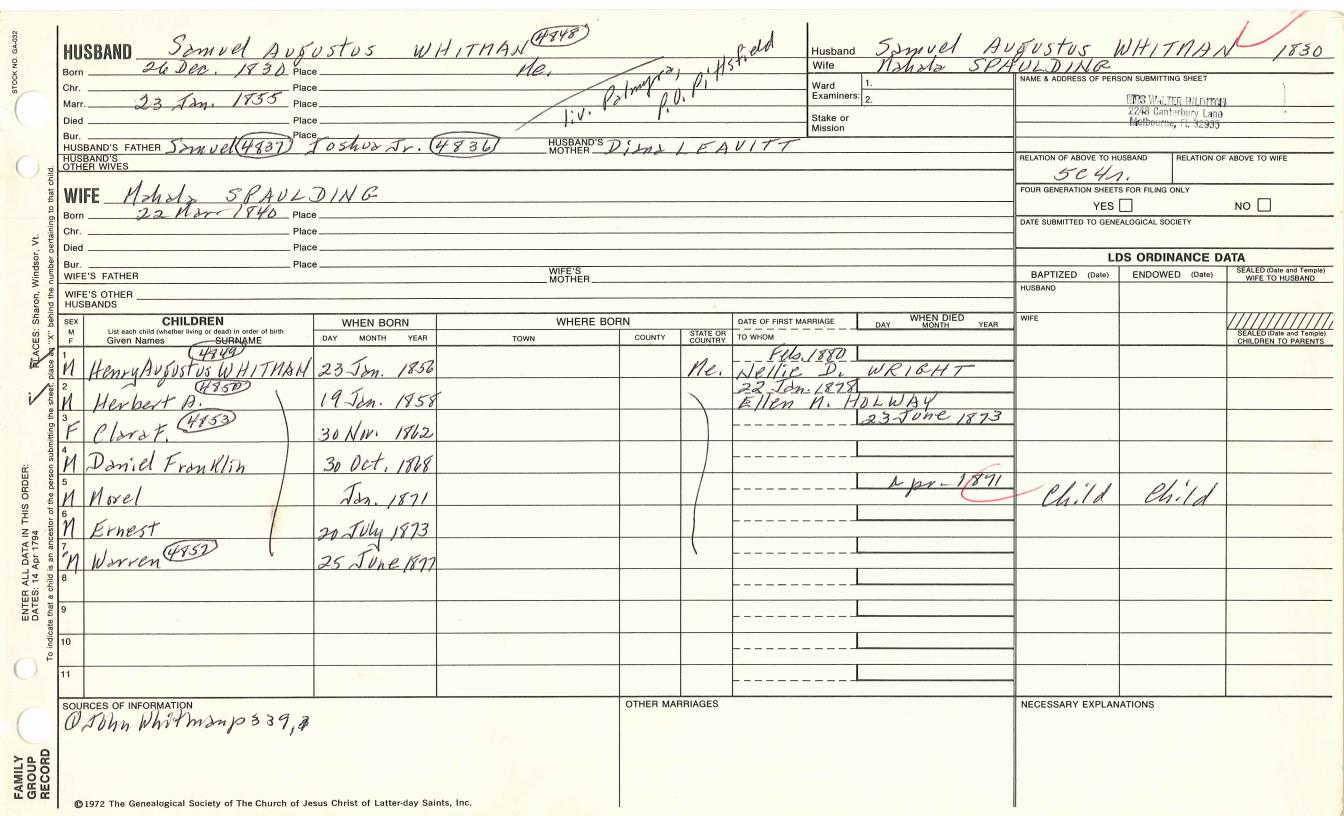 STOCK NO. GA-032
HUSBAND Samuel Augustus WHITMAN 4848
Born 26 Dec. 1830 Place Me.
Chr. Place
Marr. 23 Jan. 1855 Place
Died Place
Bur. Place
liv. Palmyra,
P.O. Pittsfield
HUSBAND'S FATHER Samuel 4837 Joshua Jr. 4836 HUSBAND'S MOTHER Diana LEAVITT
HUSBAND'S OTHER WIVES
WIFE Mahala SPAULDING
Born 22 Mar 1840 Place
Chr. Place
Died Place
Bur. Place
WIFE'S FATHER WIFE'S MOTHER
WIFE'S OTHER HUSBANDS
Husband Samuel Augustus WHITMAN 1830
Wife Mahala SPAULDING
Ward Examiners: 1.
2.
Stake or Mission
NAME & ADDRESS OF PERSON SUBMITTING SHEET
MRS WALTER
2248 Canterbury Lane
Melbourne, FL 32935
RELATION OF ABOVE TO HUSBAND RELATION OF ABOVE TO WIFE
5c4r.
FOUR GENERATION SHEETS FOR FILING ONLY
YES NO
DATE SUBMITTED TO GENEALOGICAL SOCIETY
LDS ORDINANCE DATA
BAPTIZED (Date) ENDOWED (Date) SEALED (Date and Temple) WIFE TO HUSBAND
HUSBAND
WIFE
SEALED (Date and Temple) CHILDREN TO PARENTS
SEX M F CHILDREN WHEN BORN WHERE BORN DATE OF FIRST MARRIAGE WHEN DIED
List each child (whether living or dead) in order of birth
Given Names SURNAME DAY MONTH YEAR TOWN COUNTY STATE OR COUNTRY TO WHOM DAY MONTH YEAR
1 M Henry Augustus WHITMAN 4849 23 Jan. 1856 Me. Feb. 1880 Nellie D. WRIGHT
2 M Herbert A. 4850 19 Jan. 1858 22 Jan. 1878 Ellen M. HOLWAY
3 F Clara F. 4853 30 Nov. 1862 23 June 1873
4 M Daniel Franklin 30 Oct. 1868
5 M Morel Jan. 1871 Apr 1871 Child Child
6 M Ernest 20 July 1873
7 M Warren 4852 25 June 1877
8
9
10
11
SOURCES OF INFORMATION OTHER MARRIAGES NECESSARY EXPLANATIONS
① John Whitman p 339,
©1972 The Genealogical Society of The Church of Jesus Christ of Latter-day Saints, Inc.
PLACES: Sharon, Windsor, Vt.
ENTER ALL DATA IN THIS ORDER:
DATES: 14 Apr 1794
To indicate that a child is an ancestor of the person submitting the sheet, place an "X" behind the number pertaining to that child.
FAMILY
GROUP
RECORD